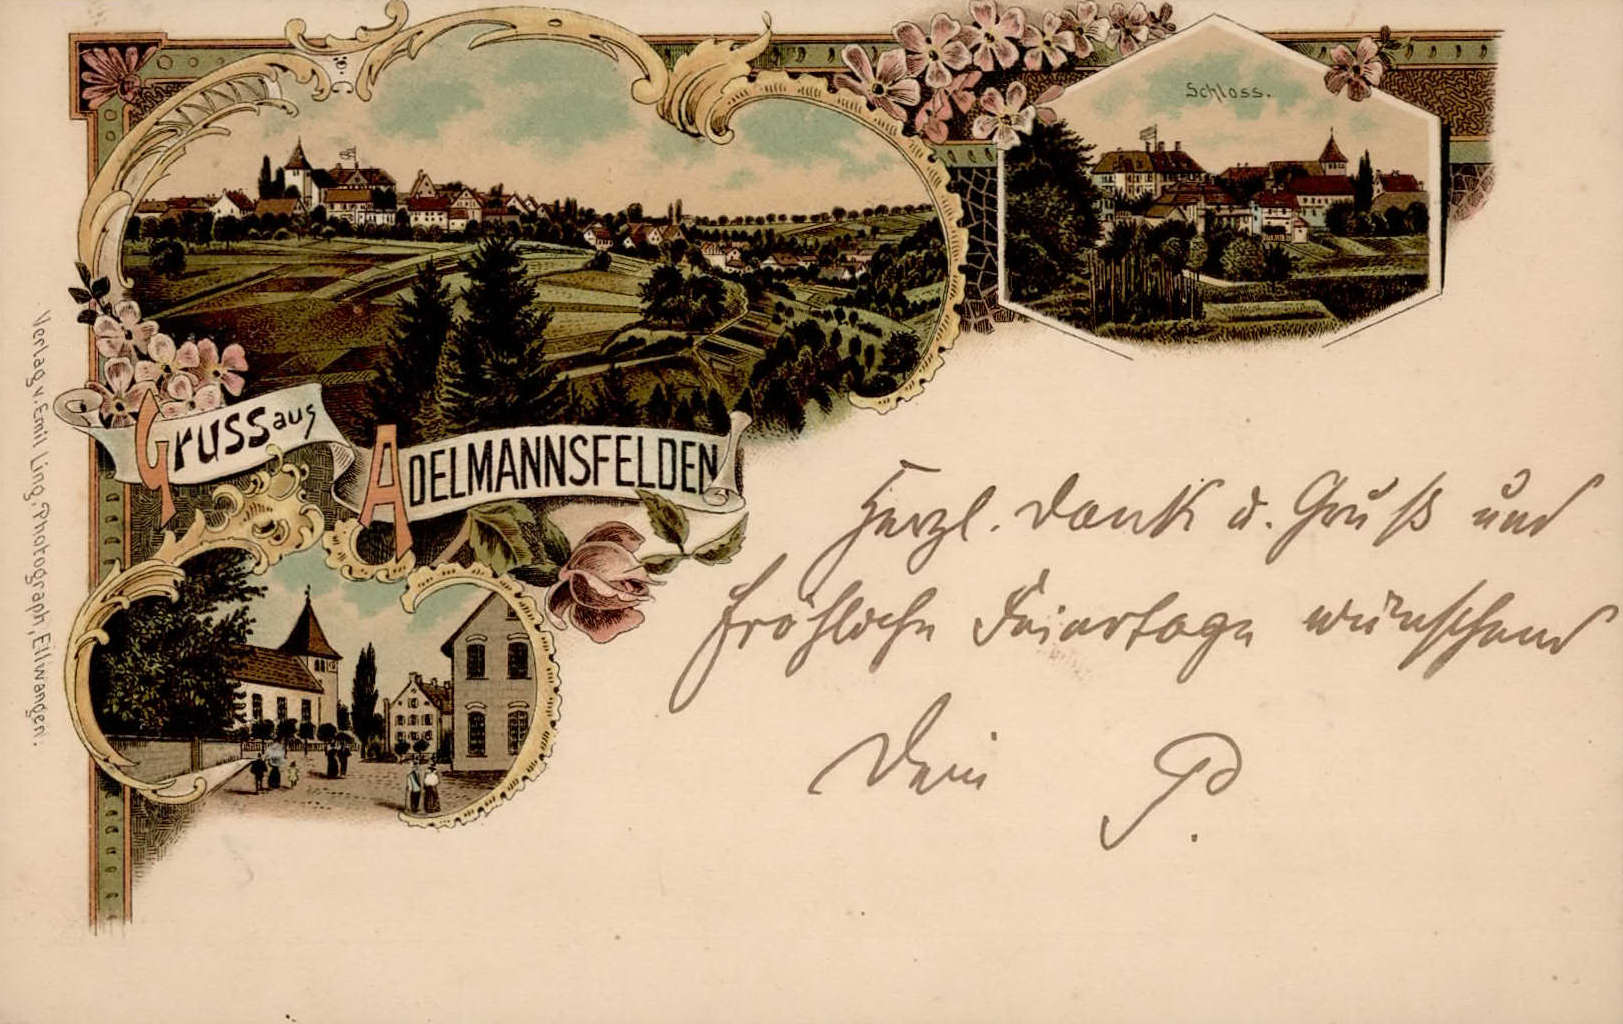 Schloss.
Gruss aus
ADELMANNSFELDEN
Verlag v. Emil Ling, Photograph, Ellwangen.
Herzl. Dank u. Gruß und
fröhliche Feiertage wünschend
Dein P.